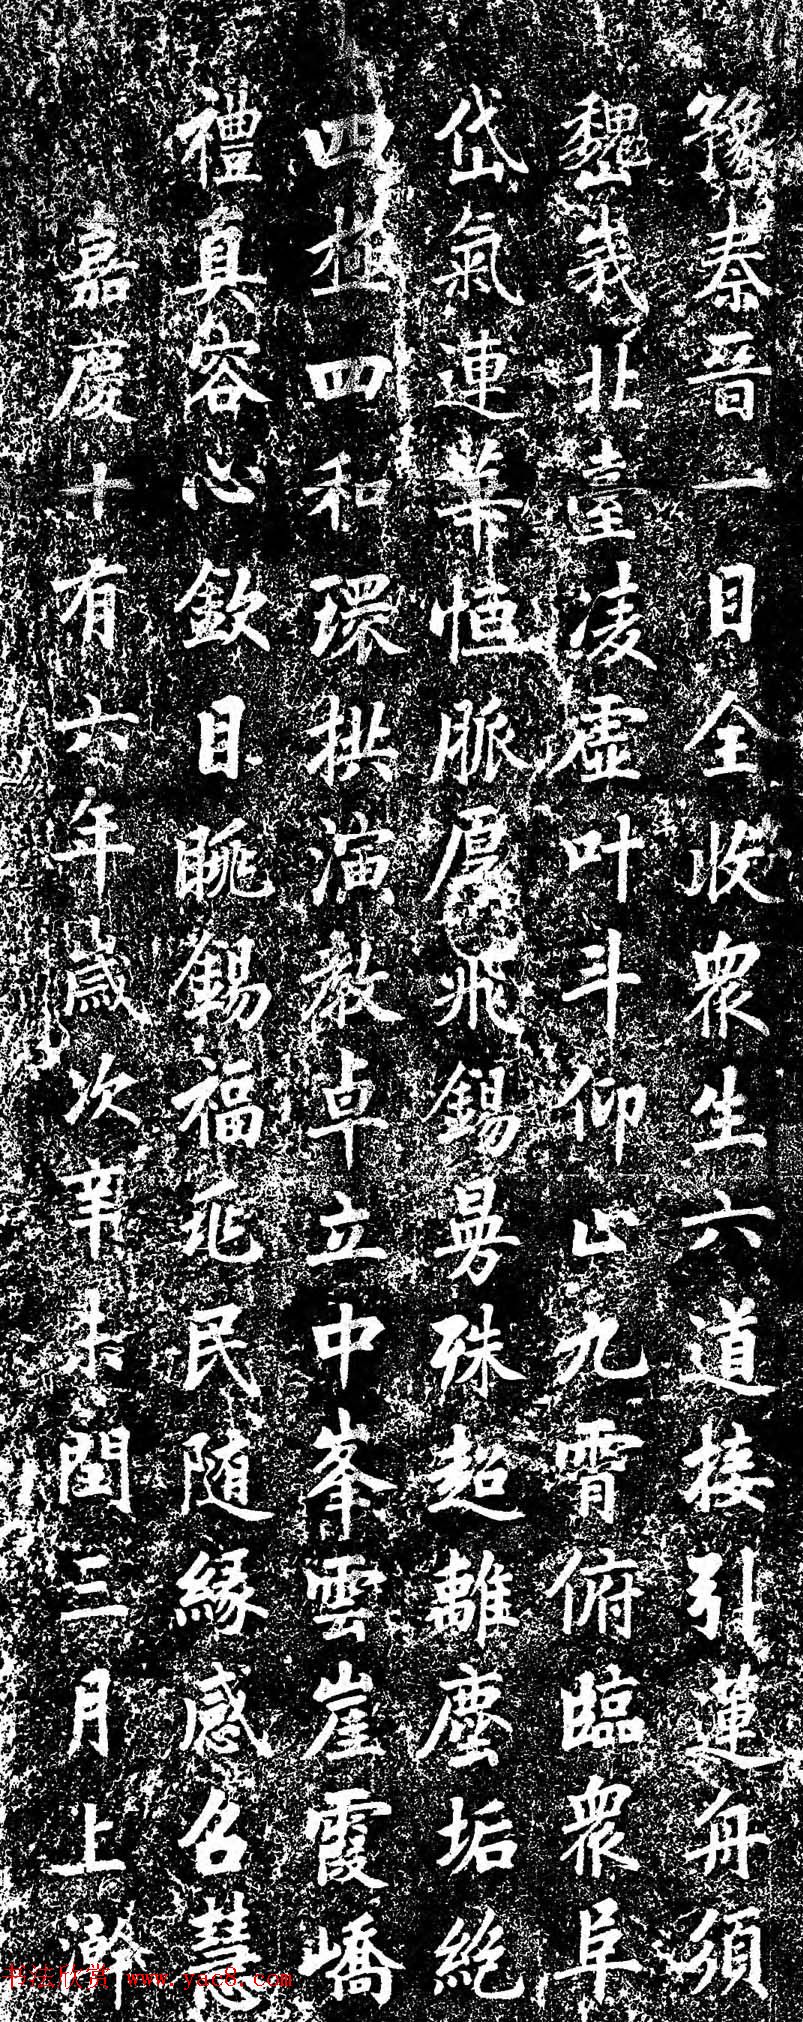 豫秦晉一目全收衆生六道接引蓮舟須
巍峩北臺淩虛叶斗仰止九霄俯臨衆阜
岱氣連華恒脈屬飛錫曇殊超離塵垢絶
四極四和環拱演教卓立中峯雲崖霞嶠
禮真容心欽目眺錫福兆民隨緣感召慧
嘉慶十有六年歲次辛未閏三月上澣
书法欣赏 www.yac8.com